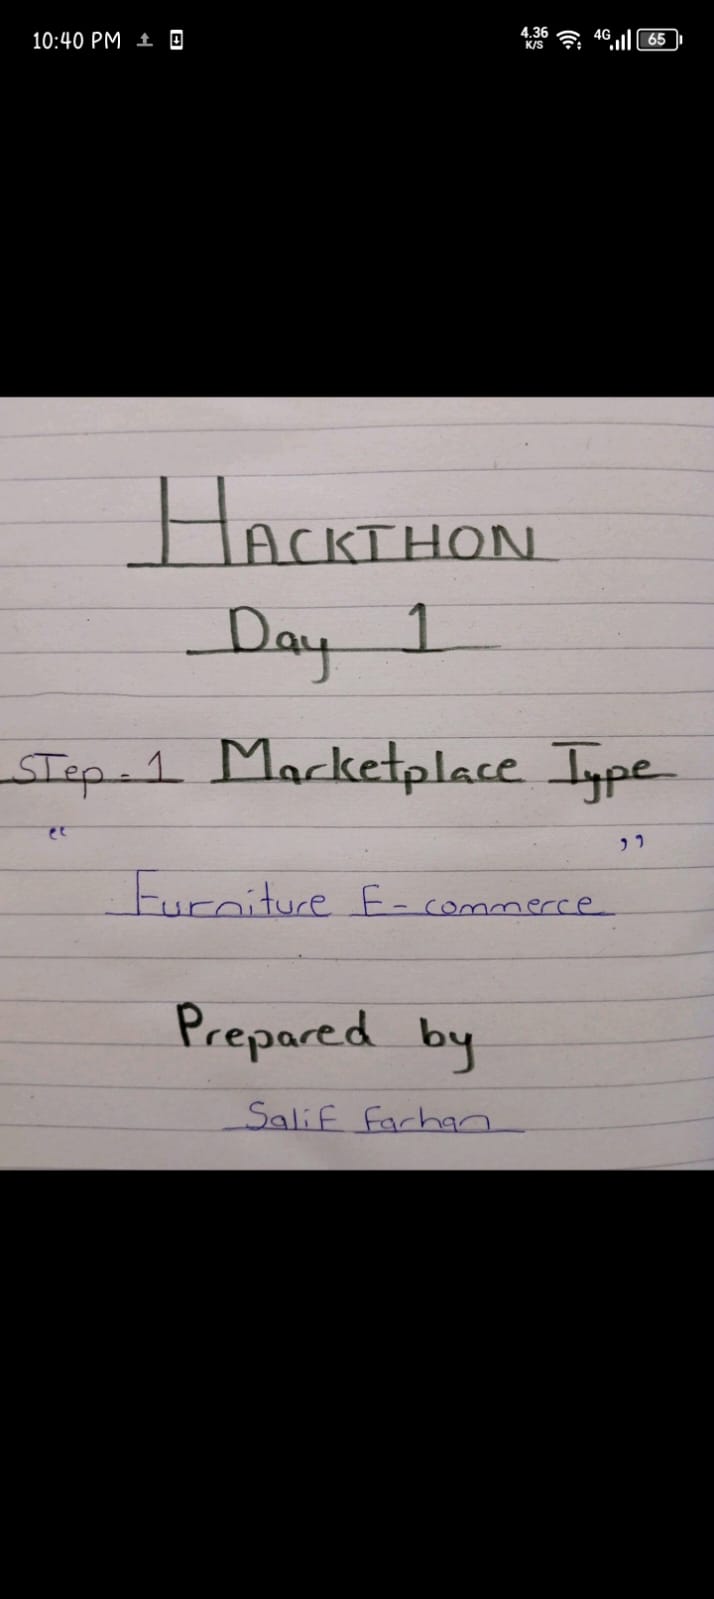 10:40 PM
4.36 K/S
4G
65
HACKTHON
Day 1
STep-1 Marketplace Type
“ ”
Furniture E-commerce
Prepared by
Salif Farhan